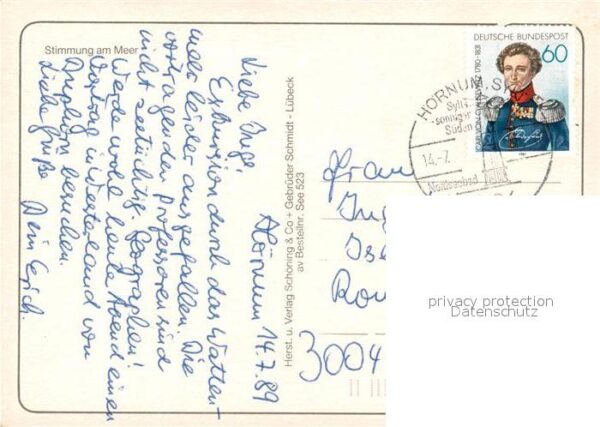 Stimmung am Meer
Hörnum 14.7.89
Liebe Inge,
Exkursion durch das Watten-
meer leider ausgefallen. Die
vortragenden Professoren sind
nicht seetüchtig. Geographen!
Werde wohl heute Abend einen
Vortrag in Westerland von
besuchen.
Liebe Grüße Dein Erich.
Herst. u. Verlag Schöning & Co + Gebrüder Schmidt - Lübeck
av Bestellnr. See 523
DEUTSCHE BUNDESPOST
60
CARL VON CLAUSEWITZ 1780-1831
HÖRNUM, S
Sylt
sonniger
Süden
14.-7.
Nordseebad
Frau
3004
privacy protection
Datenschutz